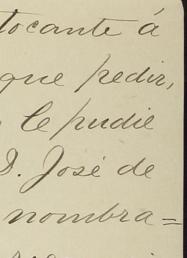 tocante á
que pedir,
le pudie
D. José de
nombra=